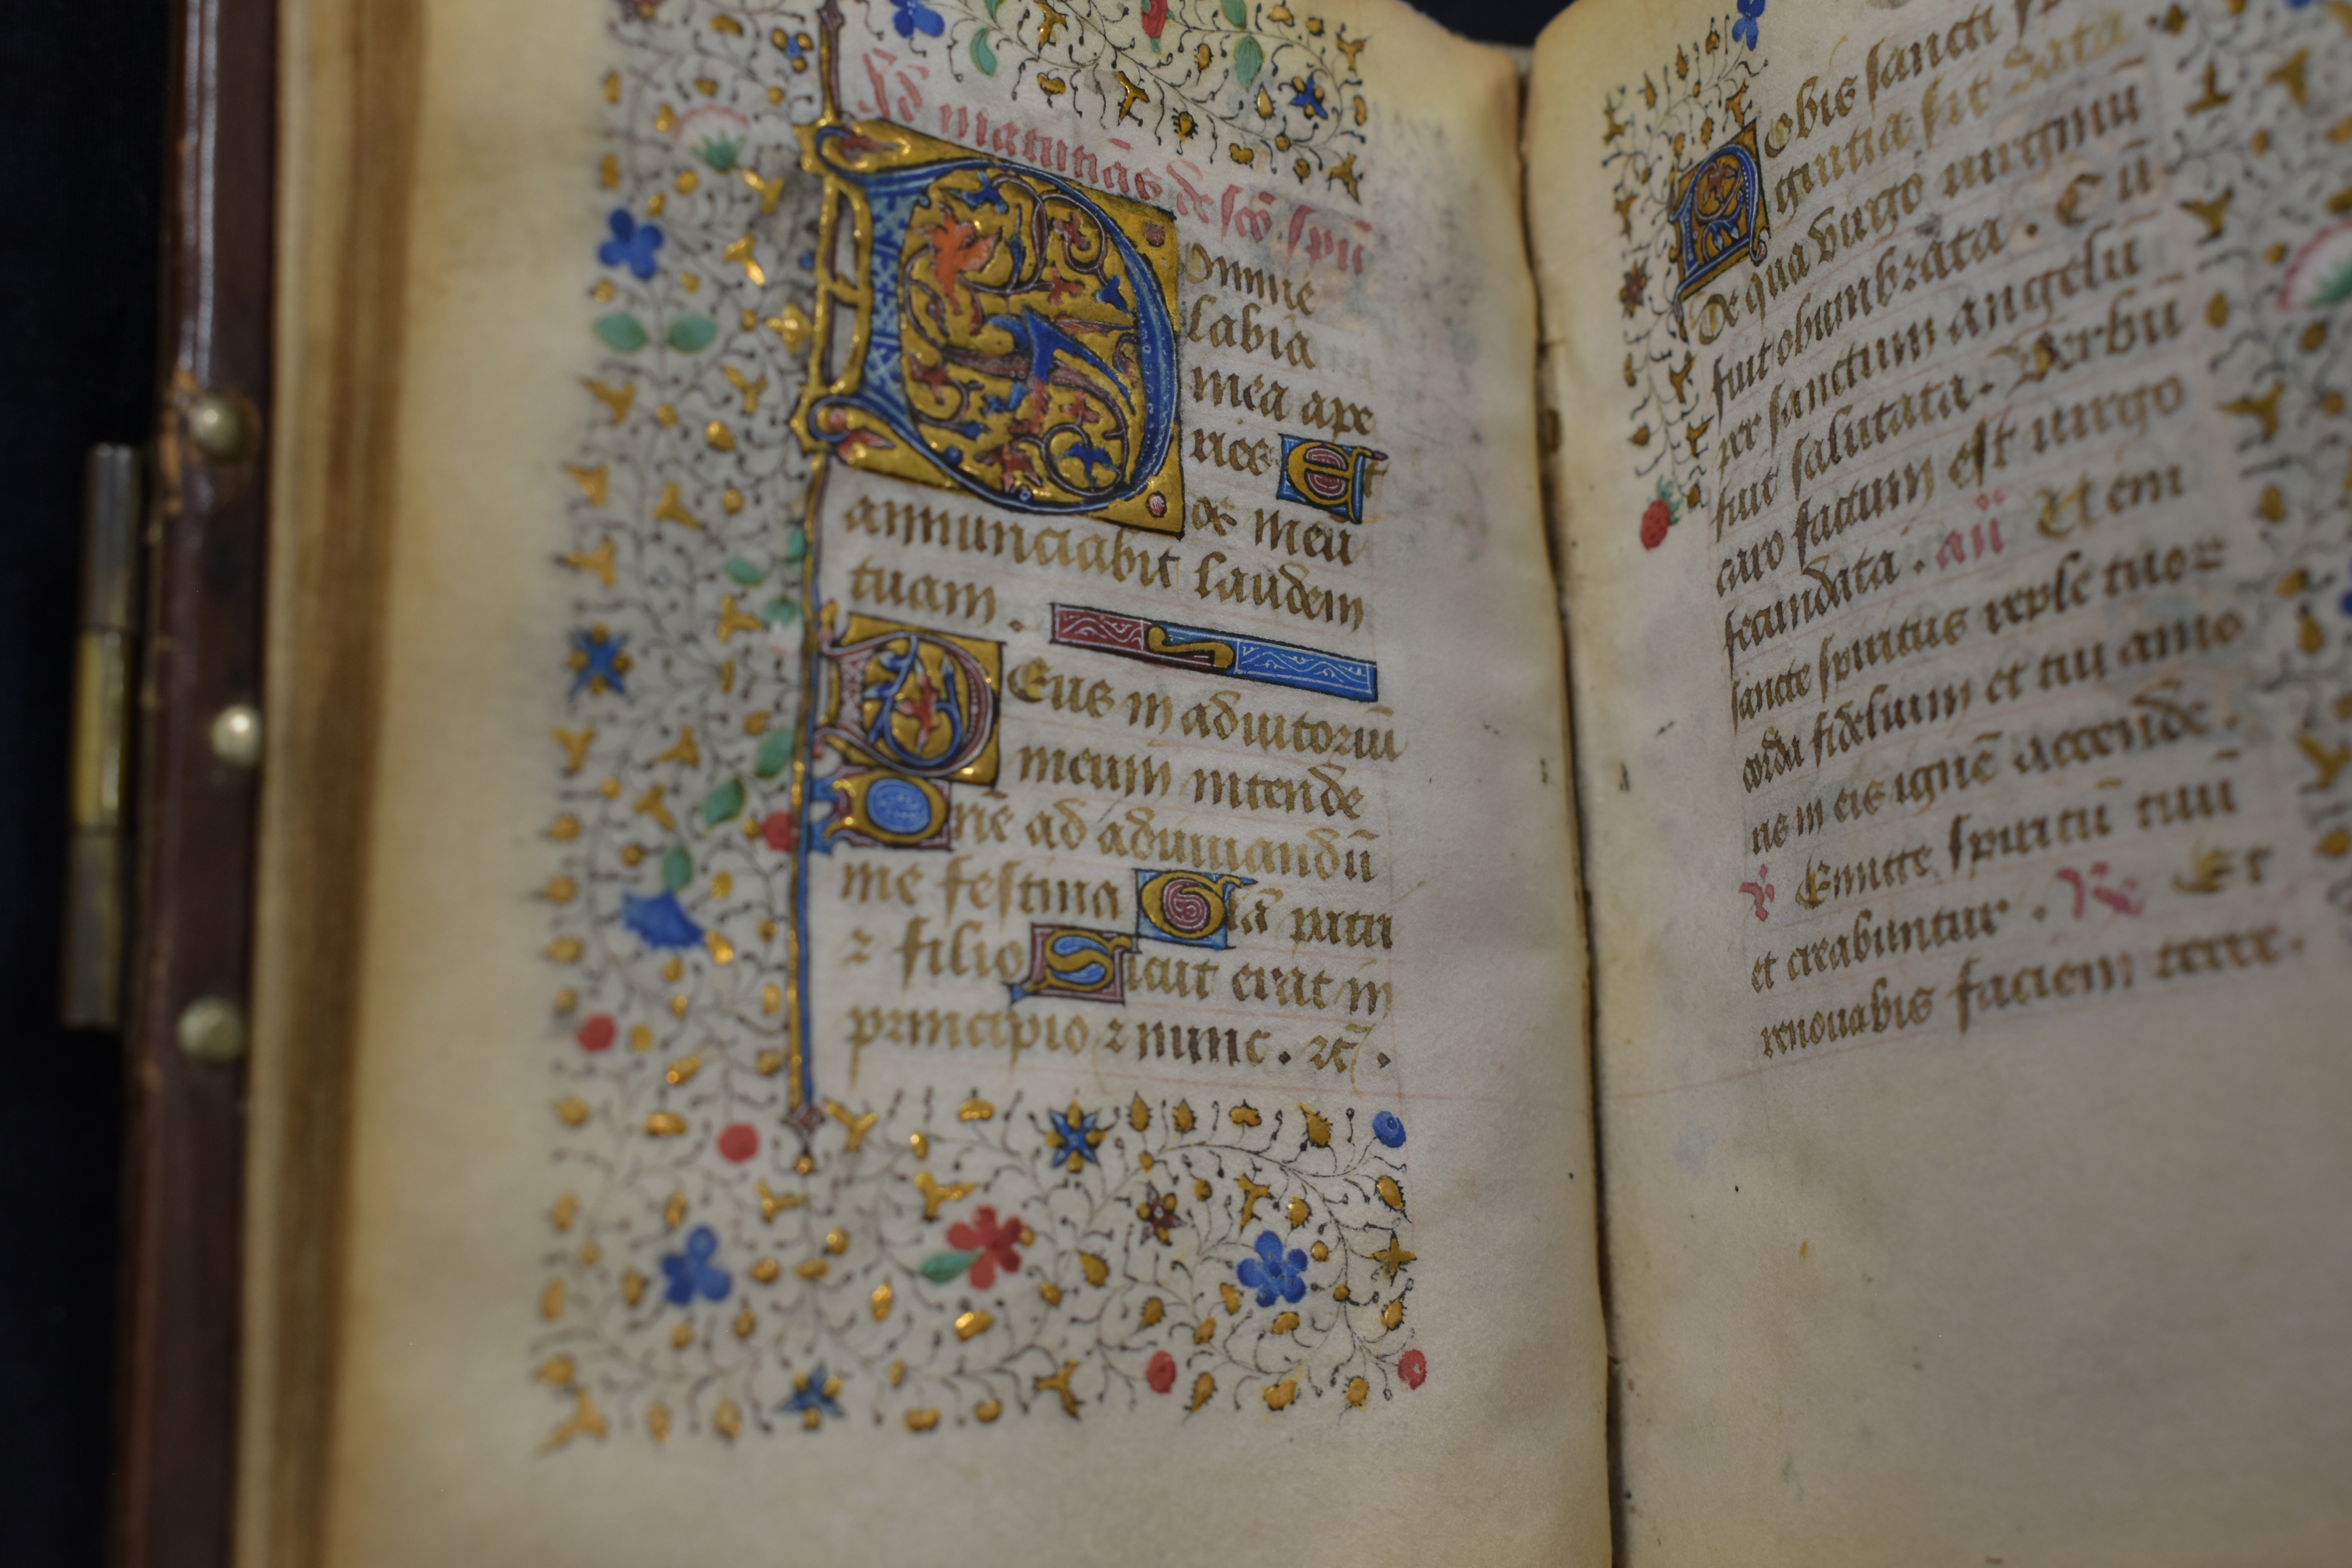 Ad matutinas de sco spu
Domine
labia
mea ape
ries Et
os meū
annunciabit laudem
tuam .
Deus in adiutoriū
meum intende
Dne ad adiuuandū
me festina Glā patri
⁊ filio Sicut erat in
principio ⁊ nunc . ⁊c̄ .
Nobis sancti
gratia sit data .
De qua virgo virginū
fuit obumbrata . Cū
per sanctum angelū
fuit salutata . Verbū
caro factum est virgo
fecundata . an Veni
sancte spiritus reple tuoꝝ
corda fidelium et tui amo
ris in eis ignē accende .
℣ Emitte spiritū tuū
et creabuntur . ℟ Et
renouabis faciem terre .